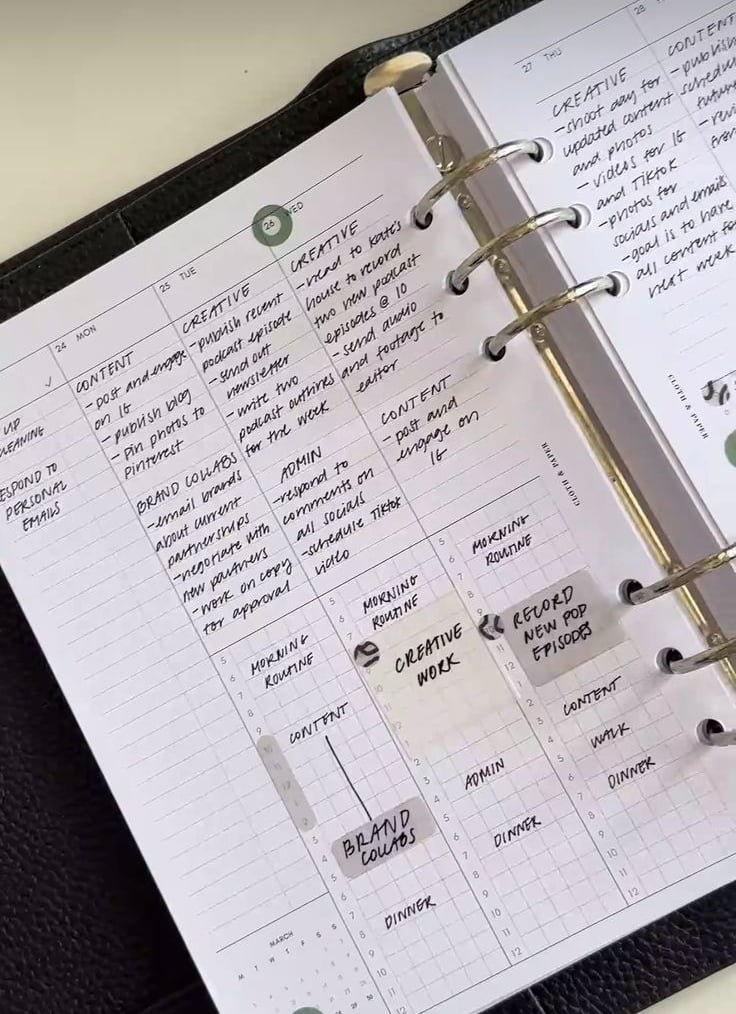 UP
CLEANING
RESPOND TO
PERSONAL
EMAILS
24 MON
CONTENT
- post and engage
on IG
- publish blog
- pin photos to
Pinterest
BRAND COLLABS
- email brands
about current
partnerships
- negotiate with
new partners
- work on copy
for approval
5
6
7
8
9
10
11
12
1
2
3
4
5
6
7
8
9
10
11
12
MORNING
ROUTINE
CONTENT
BRAND
COLLABS
DINNER
25 TUE
CREATIVE
- publish recent
podcast episode
- send out
newsletter
- write two
podcast outlines
for the week
ADMIN
- respond to
comments on
all socials
- schedule TikTok
video
MORNING
ROUTINE
CREATIVE
WORK
ADMIN
DINNER
26 WED
CREATIVE
- head to Kate's
house to record
two new podcast
episodes @ 10
- send audio
and footage to
editor
CONTENT
- post and
engage on
IG
MORNING
ROUTINE
RECORD
NEW POD
EPISODES
CONTENT
WALK
DINNER
CLOTH & PAPER
MARCH
M T W T F S S
27 THU
CREATIVE
- shoot day for
updated content
and photos
- videos for IG
and TikTok
- photos for
socials and emails
- goal is to have
all content for
next week
CLOTH & PAPER
28
CONTENT
- publish